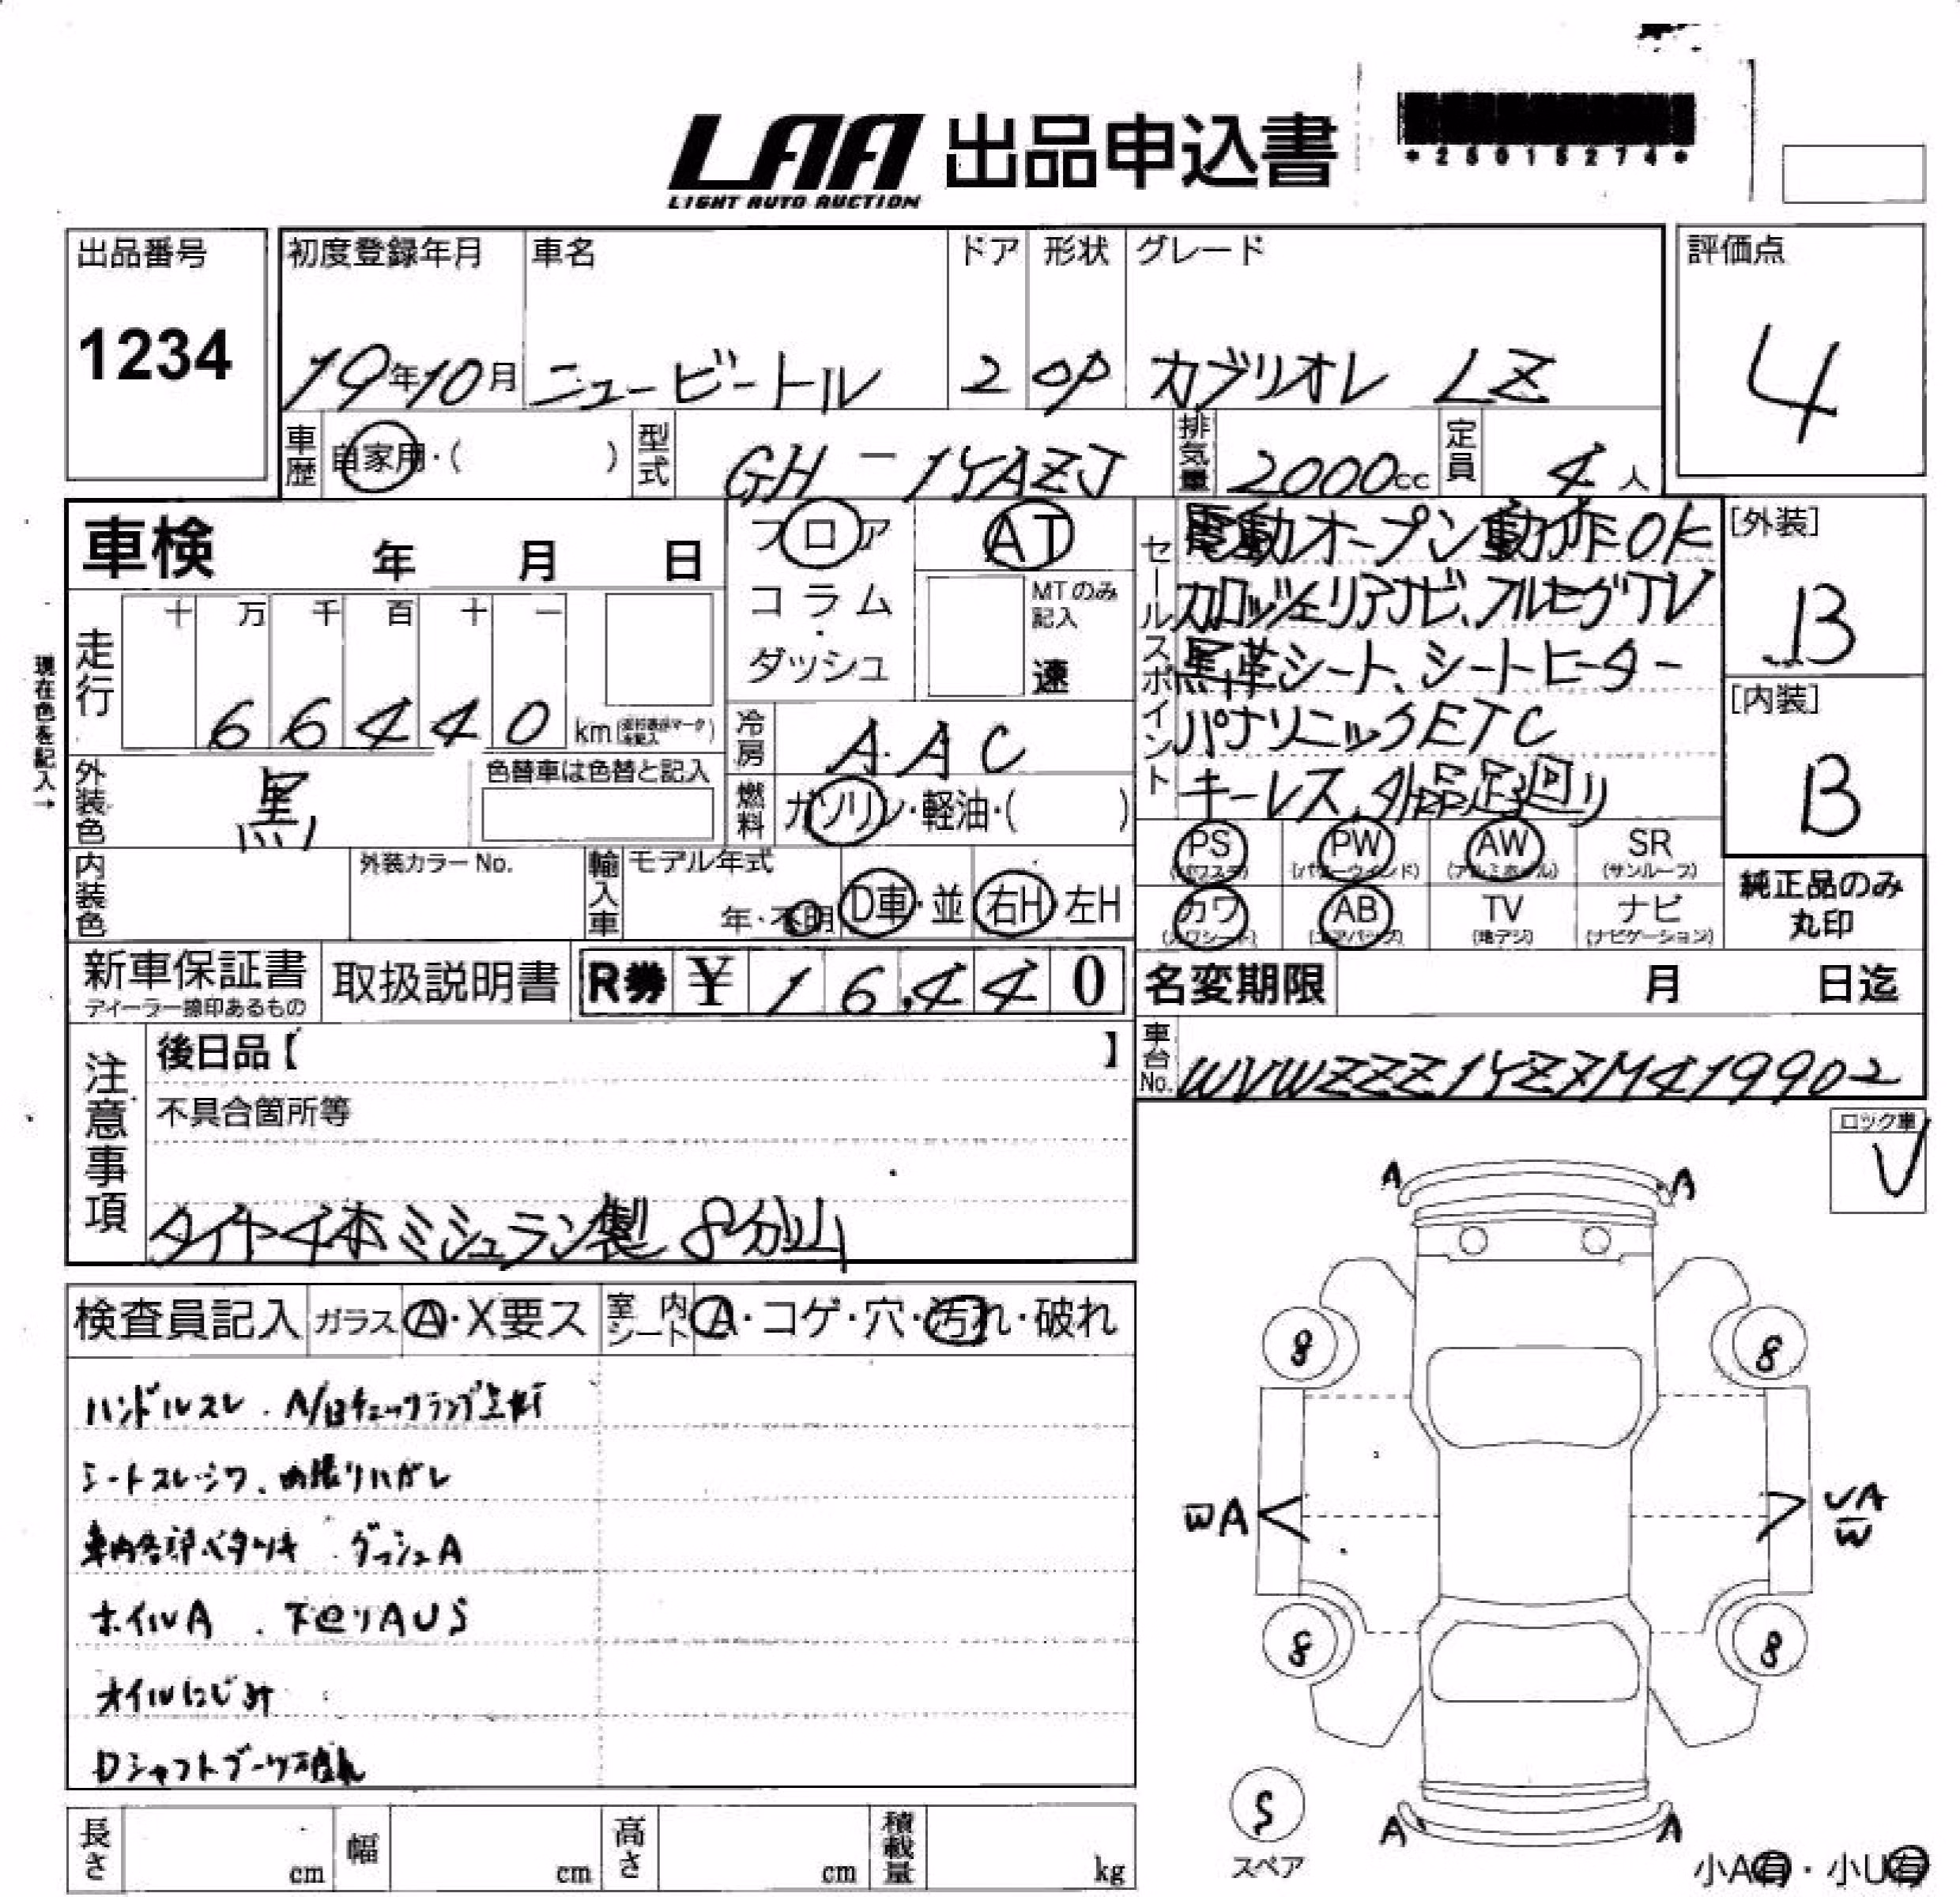 LAA 出品申込書
LIGHT AUTO AUCTION
*25015274*
出品番号 初度登録年月 車名 ドア 形状 グレード 評価点
1234 19年10月 ニュービートル 2 OP カブリオレ LZ 4
車歴 自家用・( ) 型式 GH-1YAZJ 排気量 2000cc 定員 4人
車検 年 月 日
フロア AT
コラム・ダッシュ
MTのみ記入 速
セールスポイント
電動オープン動作OK
カロッツェリアナビ、フルセグTV
黒革シート、シートヒーター
パナソニックETC
キーレス、外品足回り
[外装] B
[内装] B
現在色を記入→
走行 十 万 千 百 十 一
66440 km
冷房 AAC
外装色 黒 色替車は色替と記入
燃料 ガソリン・軽油・( )
PS PW AW SR
(パワステ) (パワーウインド) (アルミホイル) (サンルーフ)
カワ AB TV ナビ
(カワシート) (エアバッグ) (地デジ) (ナビゲーション)
純正品のみ
丸印
内装色 外装カラーNo. 輸入車 モデル年式
年・不明 D車・並 右H・左H
新車保証書 取扱説明書 R券 ¥16,440 名変期限 月 日迄
ディーラー捺印あるもの
車台No. WVWZZZ1YZ7M419902
注意事項
後日品【 】
不具合箇所等
タイヤ4本ミシュラン製 8分山
ロック車
V
検査員記入 ガラス A・X要ス 室内シート A・コゲ・穴・汚れ・破れ
ハンドルスレ.A/Bチェックランプ点灯
シートスレ・シワ、内張りハガレ
車内各部ベタツキ ダッシュA
ホイルA . 下回りAUS
オイルにじみ
Dシャフトブーツ破れ
A A
8 8
WA UA
W
8 8
S
スペア
A A
小A有・小U有
長さ cm 幅 cm 高さ cm 積載量 kg